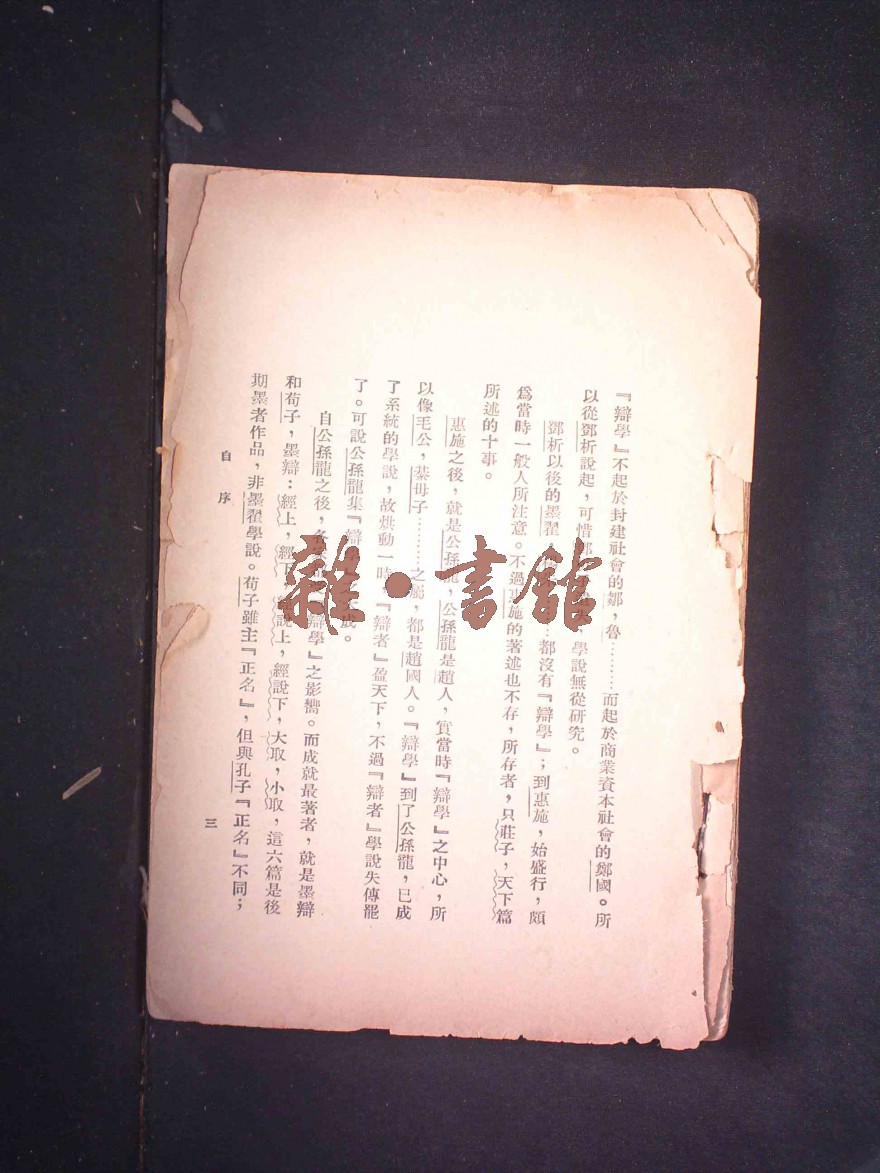 『辯學』不起於封建社會的鄒，魯………而起於商業資本社會的鄭國。所
以從鄧析說起，可惜，學說無從研究。
鄧析以後的墨翟…：都沒有『辯學』；到惠施，始盛行，頗
爲當時一般人所注意。不過惠施的著述也不存，所存者，只莊子，天下篇
所述的十事。
惠施之後，就是公孫龍，公孫龍是趙人，實當時『辯學』之中心，所
以像毛公，綦毋子………之屬，都是趙國人。『辯學』到了公孫龍，已成
了系統的學說，故烘動一時，『辯者』盈天下，不過『辯者』學說失傳罷
了。可說公孫龍集『辯成。
自公孫龍之後，辯學』之影嚮。而成就最著者，就是墨辯
和荀子，墨辯：經上，經下，經說上，經說下，大取，小取，這六篇是後
期墨者作品，非墨翟學說。荀子雖主『正名』，但與孔子『正名』不同；
自序
三
雜·書館